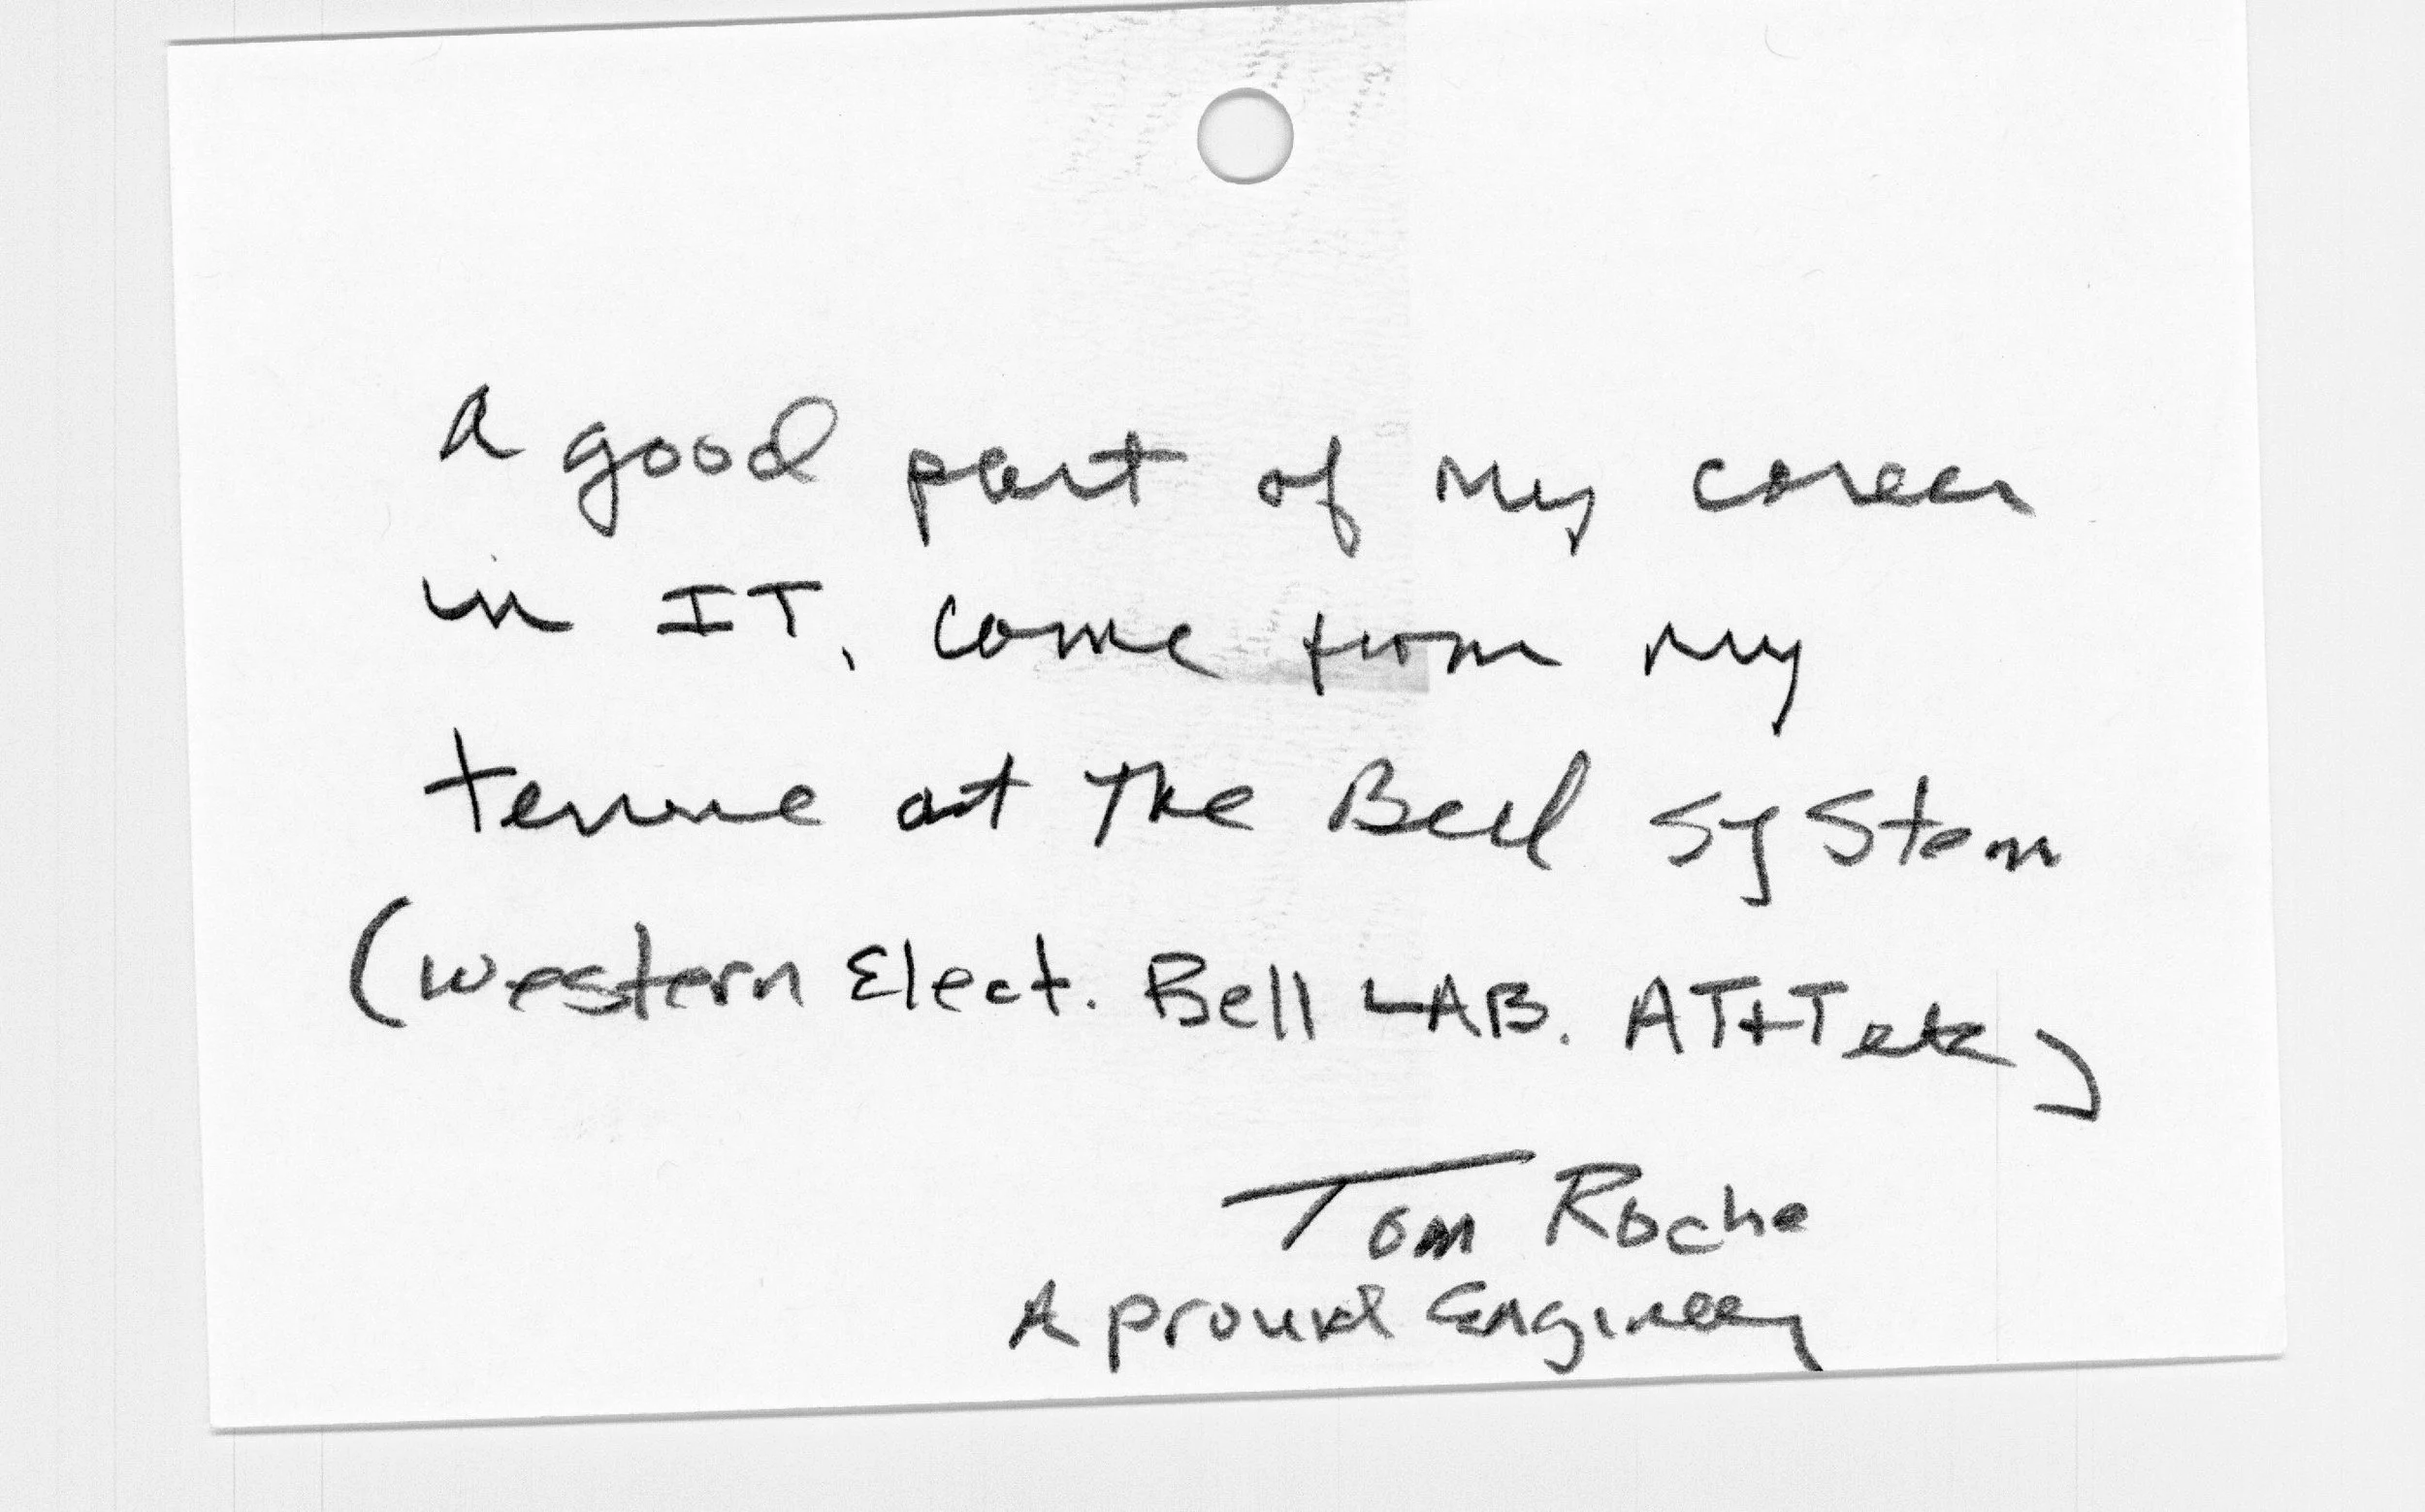 A good part of my career
in IT, come from my
tenure at the Bell System
(western Elect. Bell LAB. AT+T etc)
Tom Roche
A proud Engineer